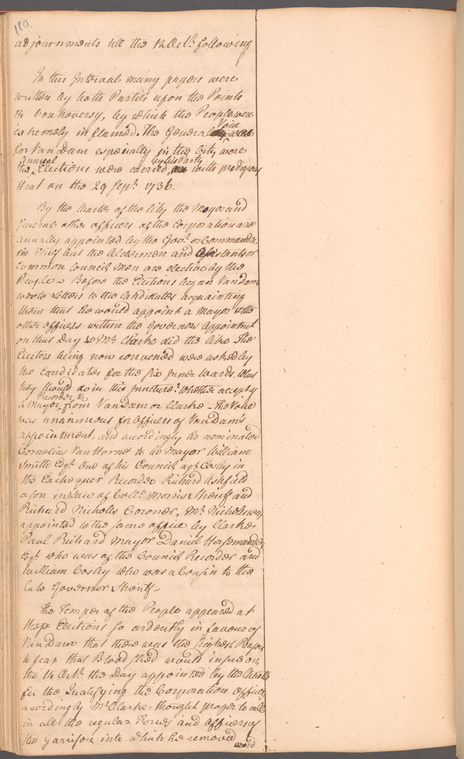 180.
adjournments till the 12 Octr. following
In this Interval many papers were
written by both Parties upon the Points
in Controversy, by which the People were
extremely inflamed. The General Voice
for Van Dam especially in the City were
Annual by his Party
the Elections were carried with prodigious
that on the 29 Sepr. 1736.
By the Charter of the City the Mayor and
several other officers of the Corporation are
anually appointed by the Govr. or Commander
in Chief but the Aldermen and Assistants or
Common Council Men are elective by the
People. Before the Elections began Van Dam
wrote Letters to the Candidates acquainting
them that he would appoint a Mayor &
other officers within the Governors Appointment
on that Day & Mr. Clarke did the like The
Electors being now convened were asked by
the Candidates for the Six Inner Wards what
they should do in this Juncture? Whether accept
Recorder &c
a Mayor from Van Dam or Clarke - The Voice
was unanimous for Officers of Van Dam's
appointment, and accordingly he nominated
Cornelius Van Horne to be Mayor William
Smith Esqr. one of his Council agt. Cosby in
the Exchequer Recorder Richard Ashfield
a son in Law of Coll. Morris Sheriff and
Richard Nicholls Coroner, Mr. Nicholls was
appointed to the same office by Clarke
Paul Richard Mayor Daniel Horsmanden
Esqr. who was of the Council Recorder and
William Cosby who was a Cousin to the
late Governor Sheriff.
The Temper of the People appeared at
these Elections so ardently in favour of
Van Dam that there was the highest Reason
to fear that Blood shed would insue on
the 14 Octr. the Day appointed by the Charter
for the Qualifying the Corporation officers
accordingly Mr. Clarke thought proper to call
in all the regular Forces and officers of
the Garrison into which he removed